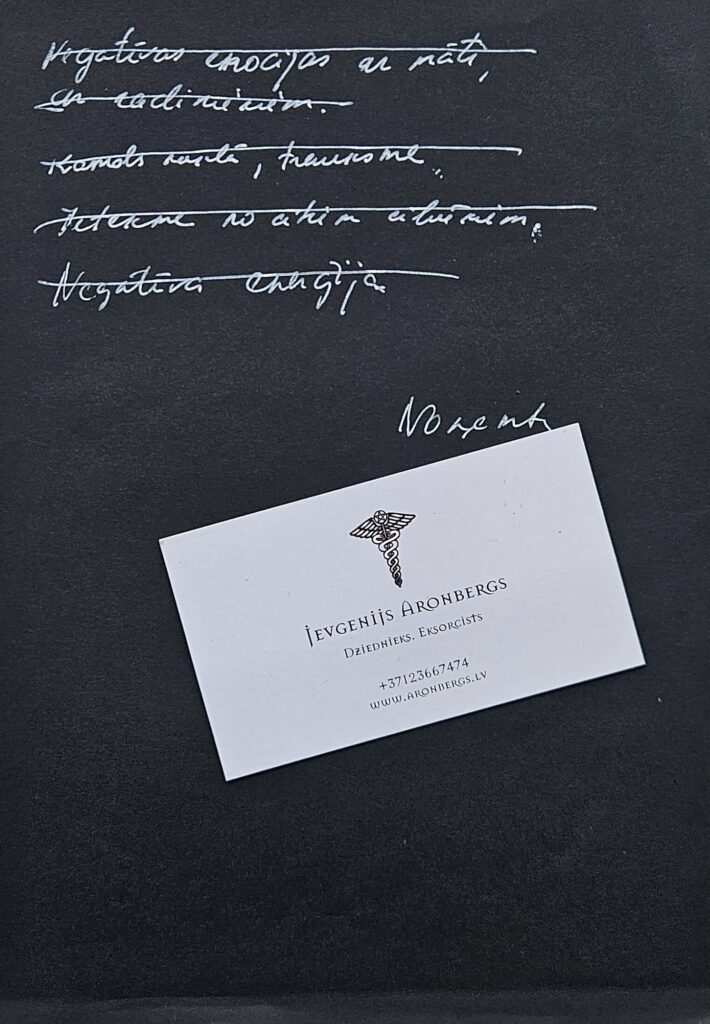 Negatīvas emocijas ar māti,
ar radiniekiem.
Kamols kaklā, trauksme.
Ietekme no citiem cilvēkiem.
Negatīva enerģija
Noņemts
Jevgenijs Aronbergs
Dziednieks. Eksorcists
+37123667474
www.aronbergs.lv